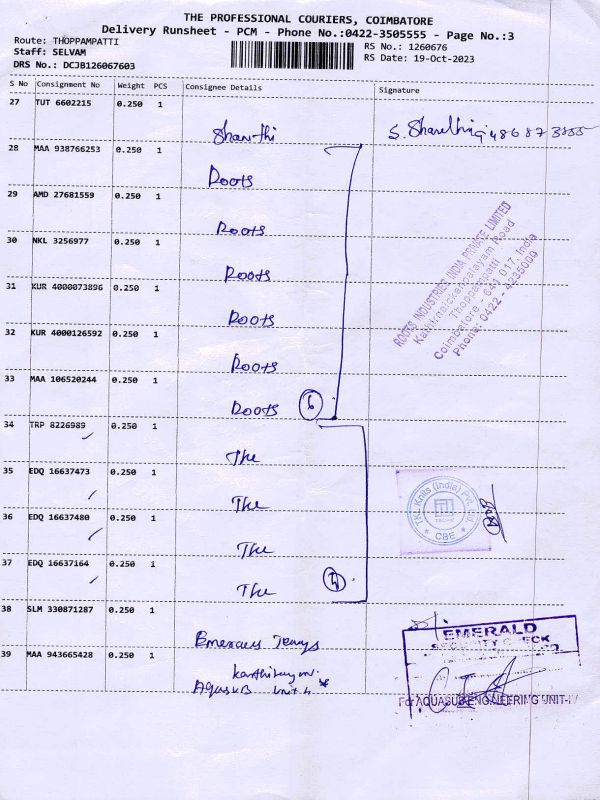 THE PROFESSIONAL COURIERS, COIMBATORE
Delivery Runsheet - PCM - Phone No.:0422-3505555 - Page No.:3
Route: THOPPAMPATTI
Staff: SELVAM
DRS No.: DCJB126067603
RS No.: 1260676
RS Date: 19-Oct-2023
S No Consignment No Weight PCS Consignee Details Signature
27 TUT 6602215 0.250 1
Shanthi
28 MAA 938766253 0.250 1
Roots
29 AMD 27681559 0.250 1
Roots
30 NKL 3256977 0.250 1
Roots
31 KUR 4000073896 0.250 1
Roots
32 KUR 4000126592 0.250 1
Roots
33 MAA 106520244 0.250 1
Roots 6
ROOTS INDUSTRIES INDIA PRIVATE LIMITED
Thoppampatti
Coimbatore - 641 017, India
Phone: 0422 - 4235009
34 TRP 8226989 0.250 1
The
35 EDQ 16637473 0.250 1
The
36 EDQ 16637480 0.250 1
The
37 EDQ 16637164 0.250 1
The 4
CBE
38 SLM 330871287 0.250 1
39 MAA 943665428 0.250 1
Aquasub Unit-4
EMERALD
SECURITY CHECK
For AQUASUB ENGINEERING UNIT-IV